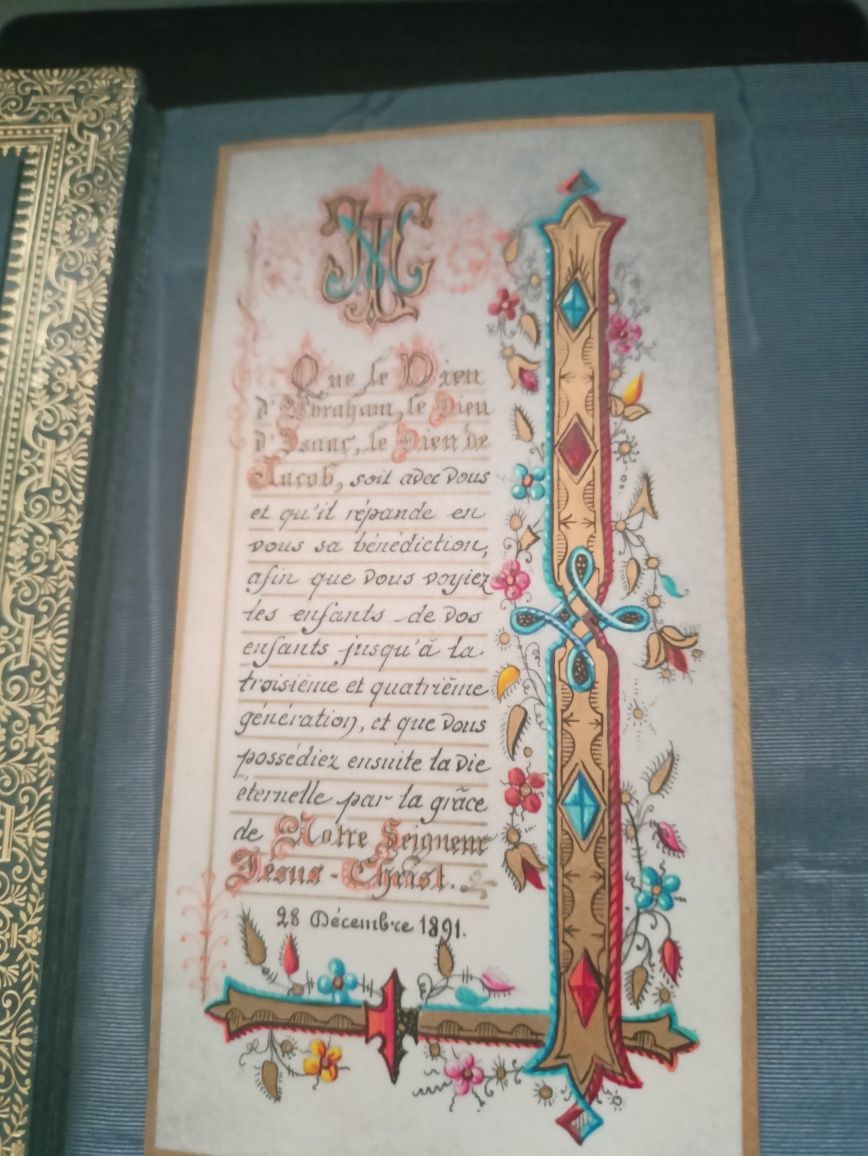 Que le Dieu
d'Abraham, le Dieu
d'Isaac, le Dieu de
Jacob, soit avec vous
et qu'il répande en
vous sa bénédiction,
afin que vous voyiez
les enfants de vos
enfants jusqu'à la
troisième et quatrième
génération, et que vous
possédiez ensuite la vie
éternelle par la grâce
de Notre Seigneur
Jésus-Christ.
28 Décembre 1891.